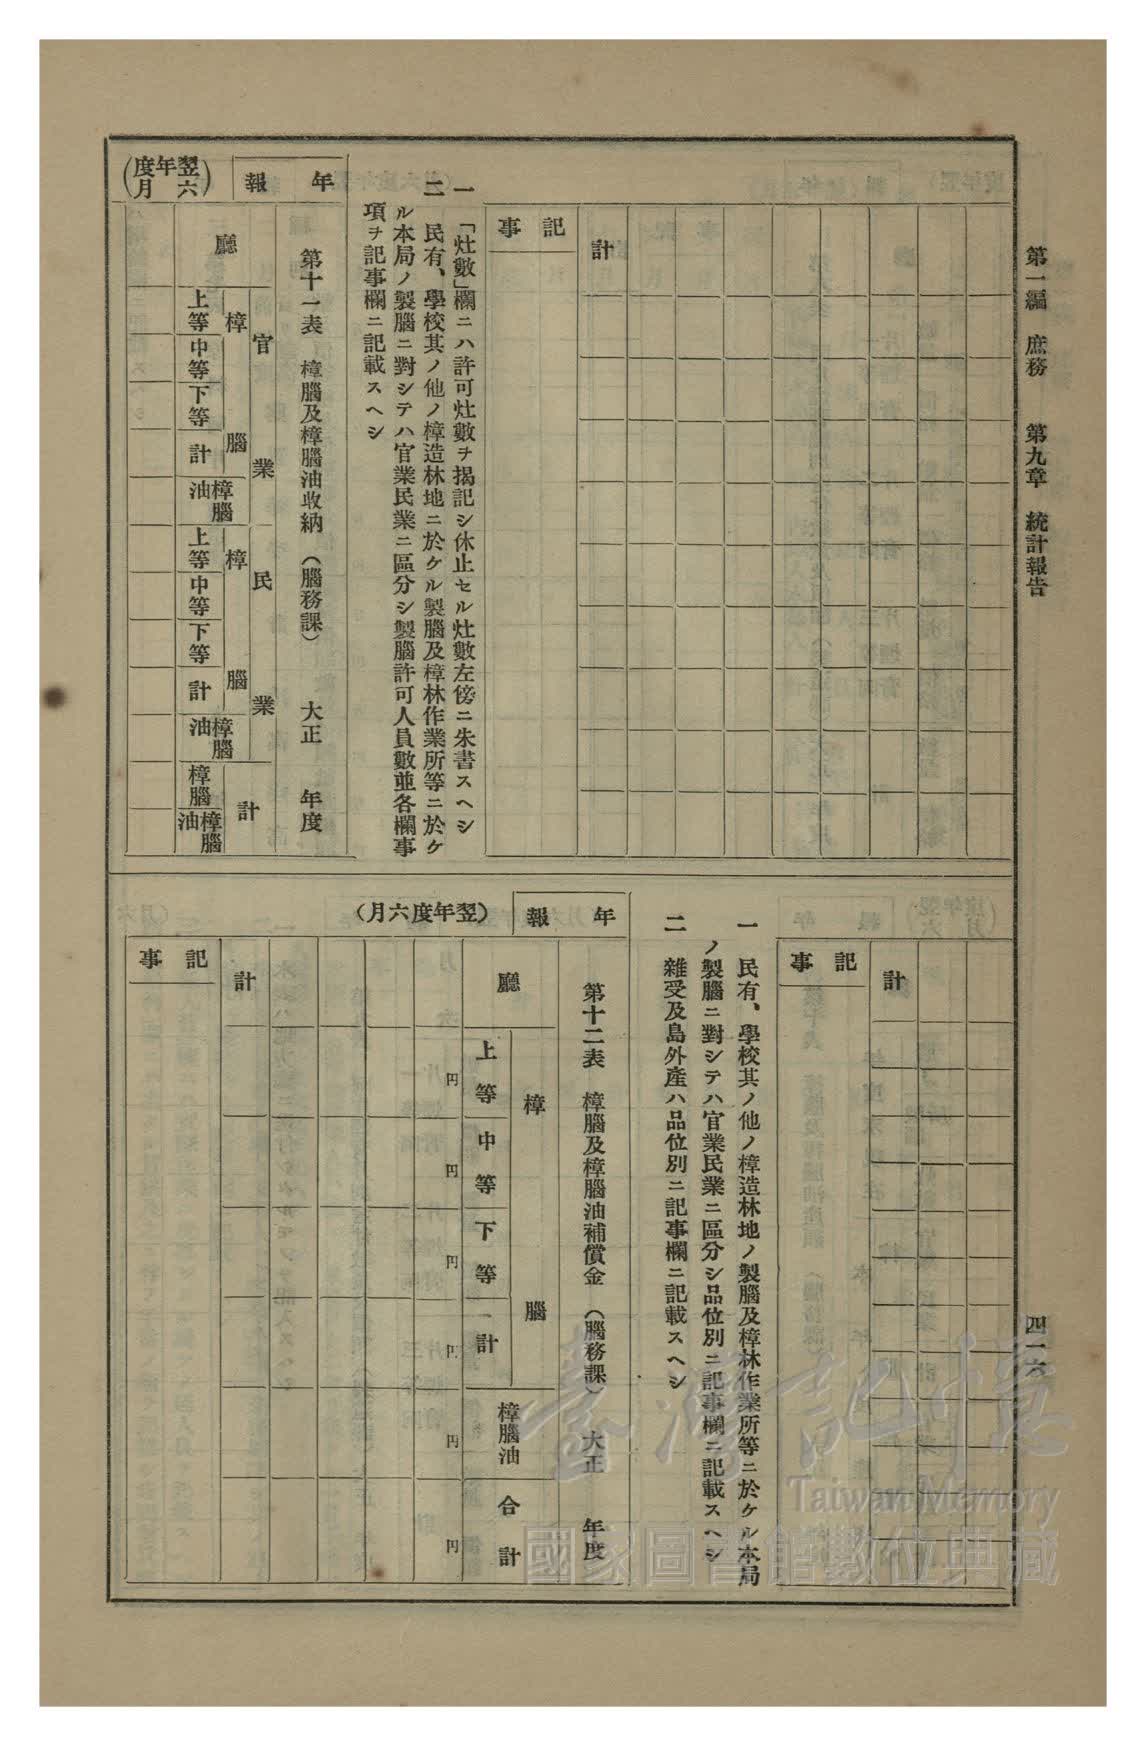 第一編　庶務　　第九章　統計報告
四一六
計
記事
一　「灶數」欄ニハ許可灶數ヲ揭記シ休止セル灶數左傍ニ朱書スヘシ
二　民有、學校其ノ他ノ樟造林地ニ於ケル製腦及樟林作業所等ニ於ケ
ル本局ノ製腦ニ對シテハ官業民業ニ區分シ製腦許可人員數並各欄事
項ヲ記事欄ニ記載スヘシ
年報
（翌年度六月）
第十一表　樟腦及樟腦油收納　（腦務課）　　大正　　年度
官業
民業
廳
樟腦
樟腦
計
上等
中等
下等
計
樟腦油
上等
中等
下等
計
樟腦油
樟腦
樟腦油
計
記事
一　民有、學校其ノ他ノ樟造林地ノ製腦及樟林作業所等ニ於ケル本局
ノ製腦ニ對シテハ官業民業ニ區分シ品位別ニ記事欄ニ記載スヘシ
二　雜受及島外產ハ品位別ニ記事欄ニ記載スヘシ
年報
（翌年度六月）
第十二表　樟腦及樟腦油補償金　（腦務課）　大正　　年度
廳
樟腦
上等
中等
下等
計
樟腦油
合計
円
円
円
円
円
円
計
記事
臺灣記憶
Taiwan Memory
國家圖書館數位典藏